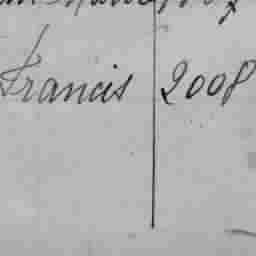 Francis 2008